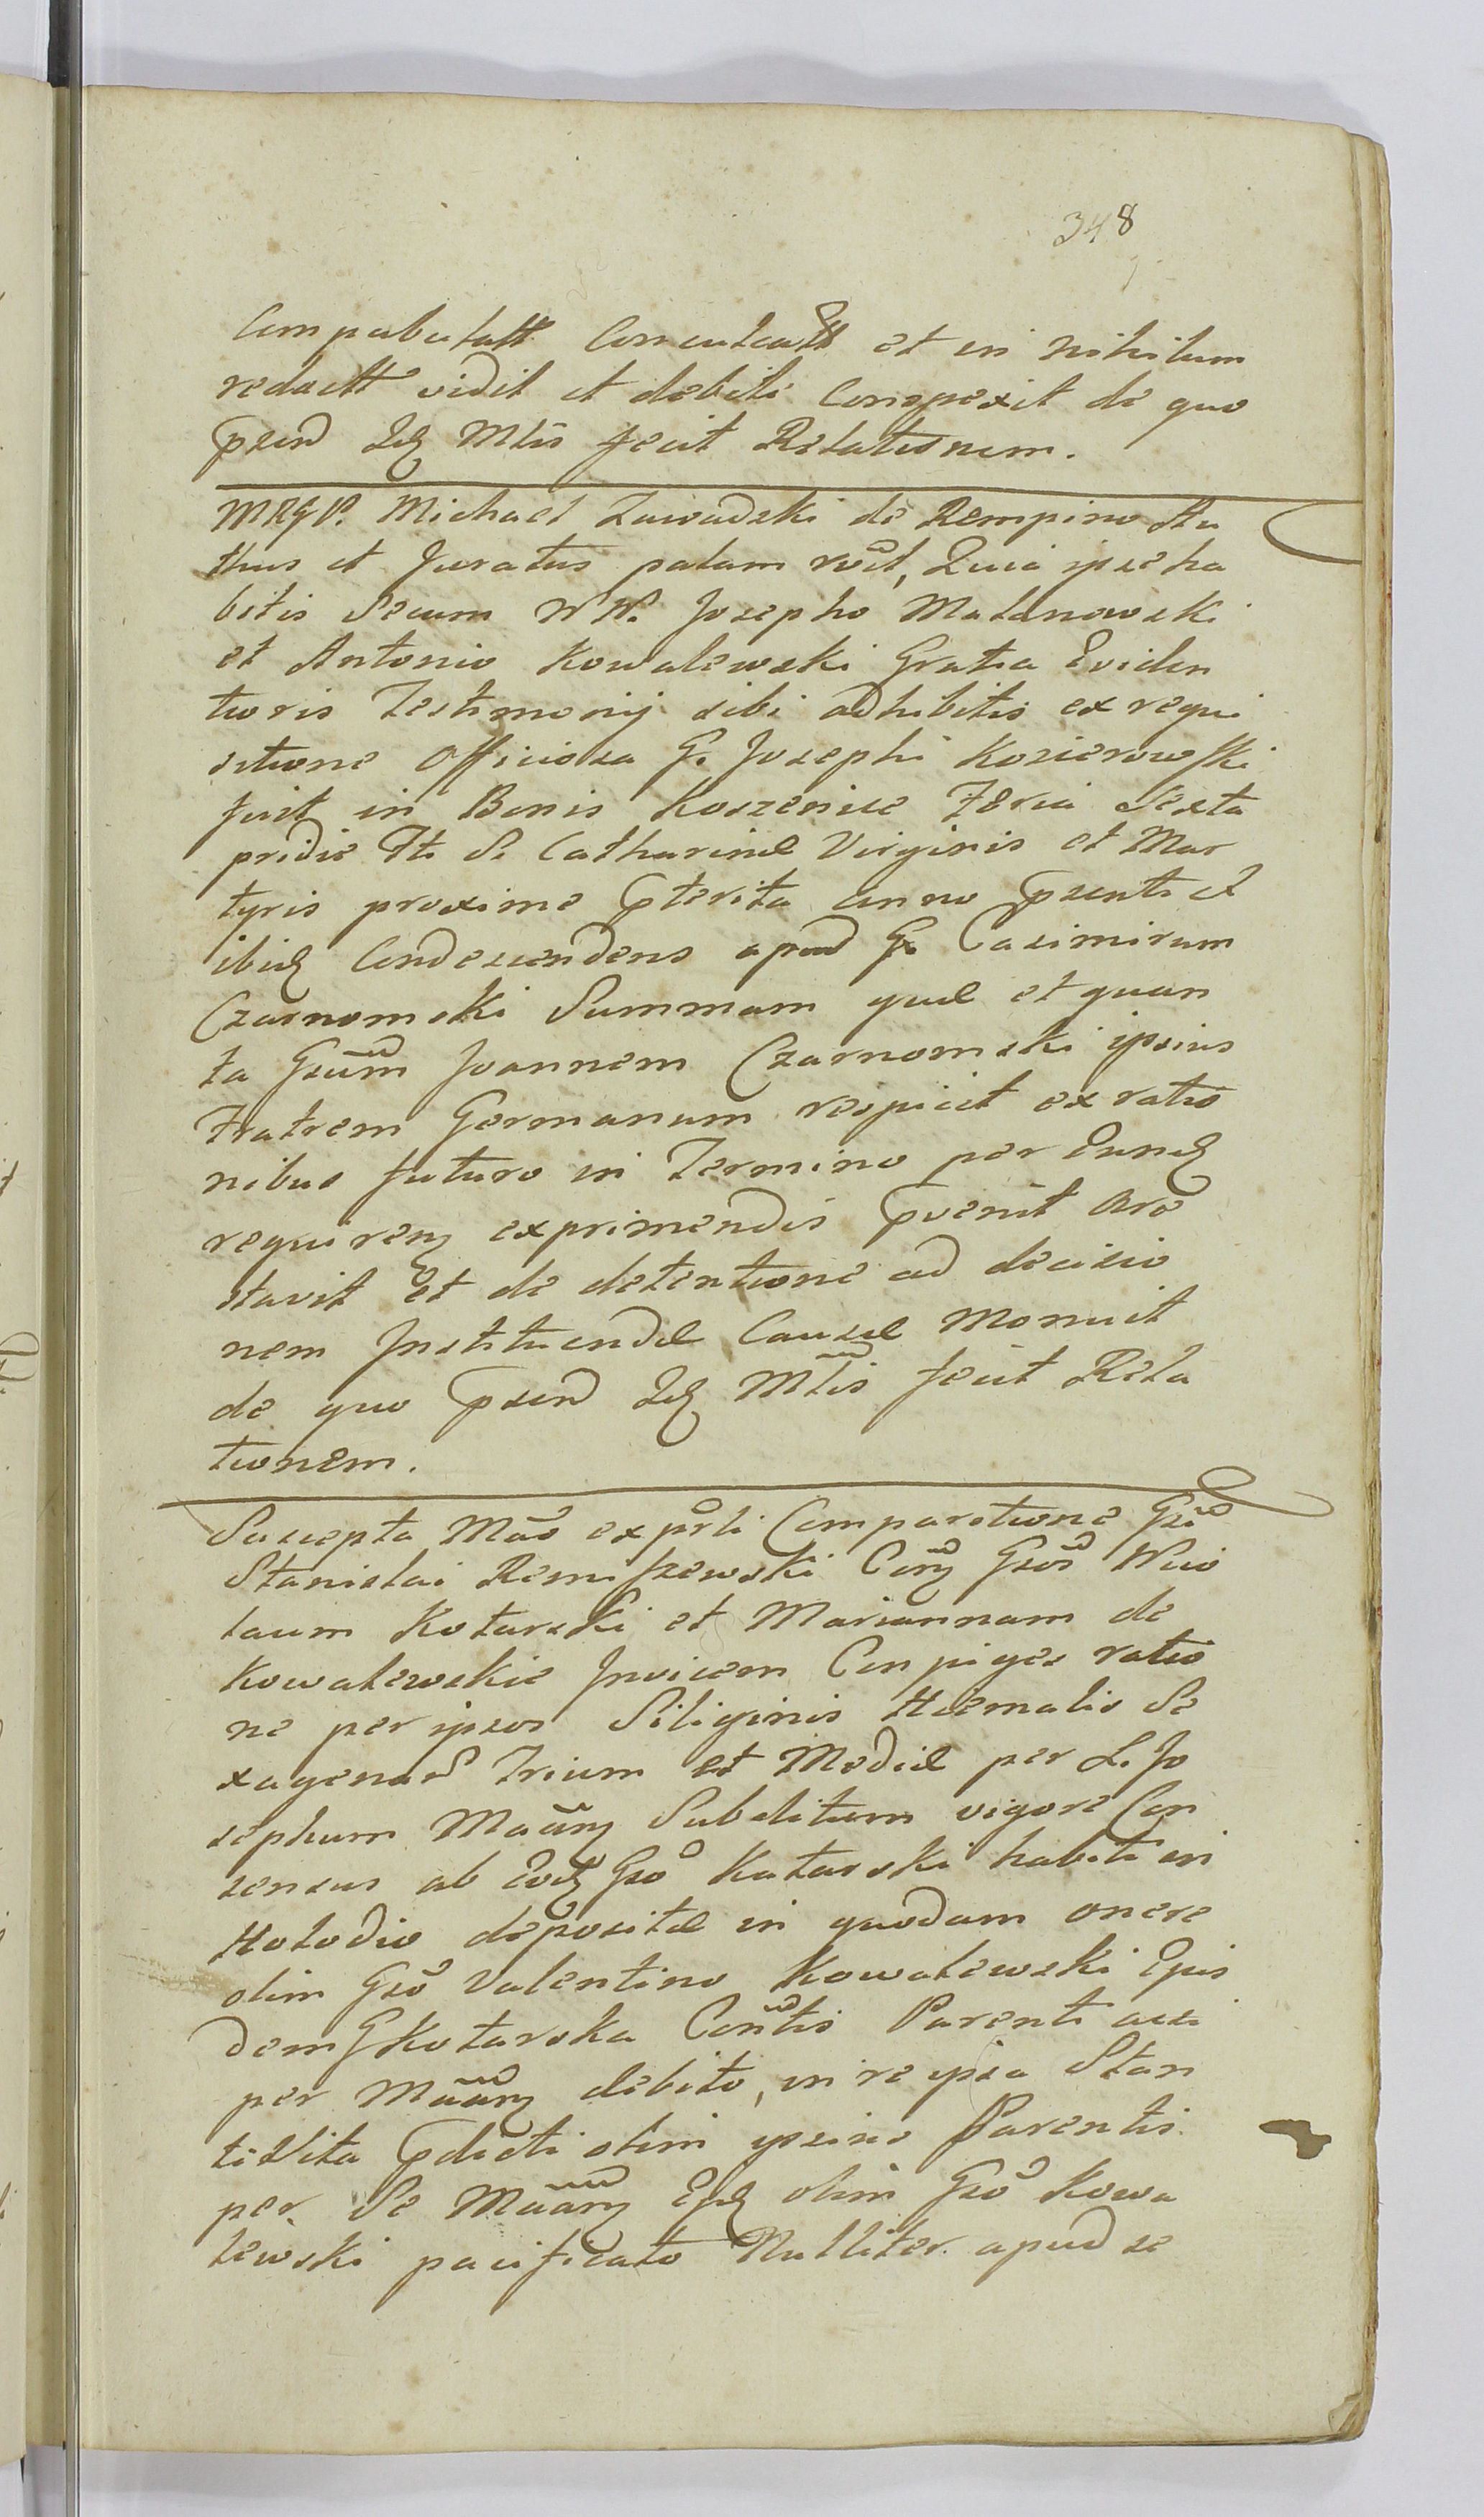 348
Compabulatt Conculcatt et in nihilum
redactt vidit et debite Conspexit de quo
pseud Idq Mtis fecit Relationem.
MRGP. Michael Zawadzki de Rempino Au
thus et Juratus palam rcd̃t, Quia ipse ha
bitis Secum NN. Josepho Malanowski
et Antonio Kowalewski Gratia Eviden
tioris Testimonij sibi adhibitis ex requi
sitione Officiosa G. Josephi Kosierowski
fuit in Bonis Koszenice Feria Sexta
pridie Fti S. Catharinæ Virginis et Mar
tyris proxime pterita anno psenti et
ibidq Condescendens apud G. Casimirum
Czarnomski Summam quæ et quan
ta Gsum Joannem Czarnomski ipsius
Fratrem Germanum respicit ex ratio
nibus futuro in Termino per Eundq
requiren exprimendis pvenit Are
stavit Et de detentione ad decisio
nem Instituendæ Causæ Monuit
de quo psend Idq Mtis fecit Rela
tionem.
Suscepta Mão ex pŏrti Comparitione Gsi
Stanislai Remiszewski Con Gsos Nico
laum Kotarski et Mariannam de
Kowalewskie Invicem Conjuges ratio
ne per ipsos Siliginis Hiemalis Se
xagenar Trium et Mediæ per L. Jo
sephum Maãrn Subditum vigore Con
sensus ab Eodq Gso Kotarski habiti in
Holodio depositæ in quodam onere
olim Gso Valentino Kowalewski Ejus
dem G Kotarska Contis Parenti acsi
per Maãrn debito, in re ipsa Stan
te Vita pdicti olim ipsius Parentis
per Se Maãrn Ejdq olim Gso Kowa
lewski pacificato Nulliter apud se